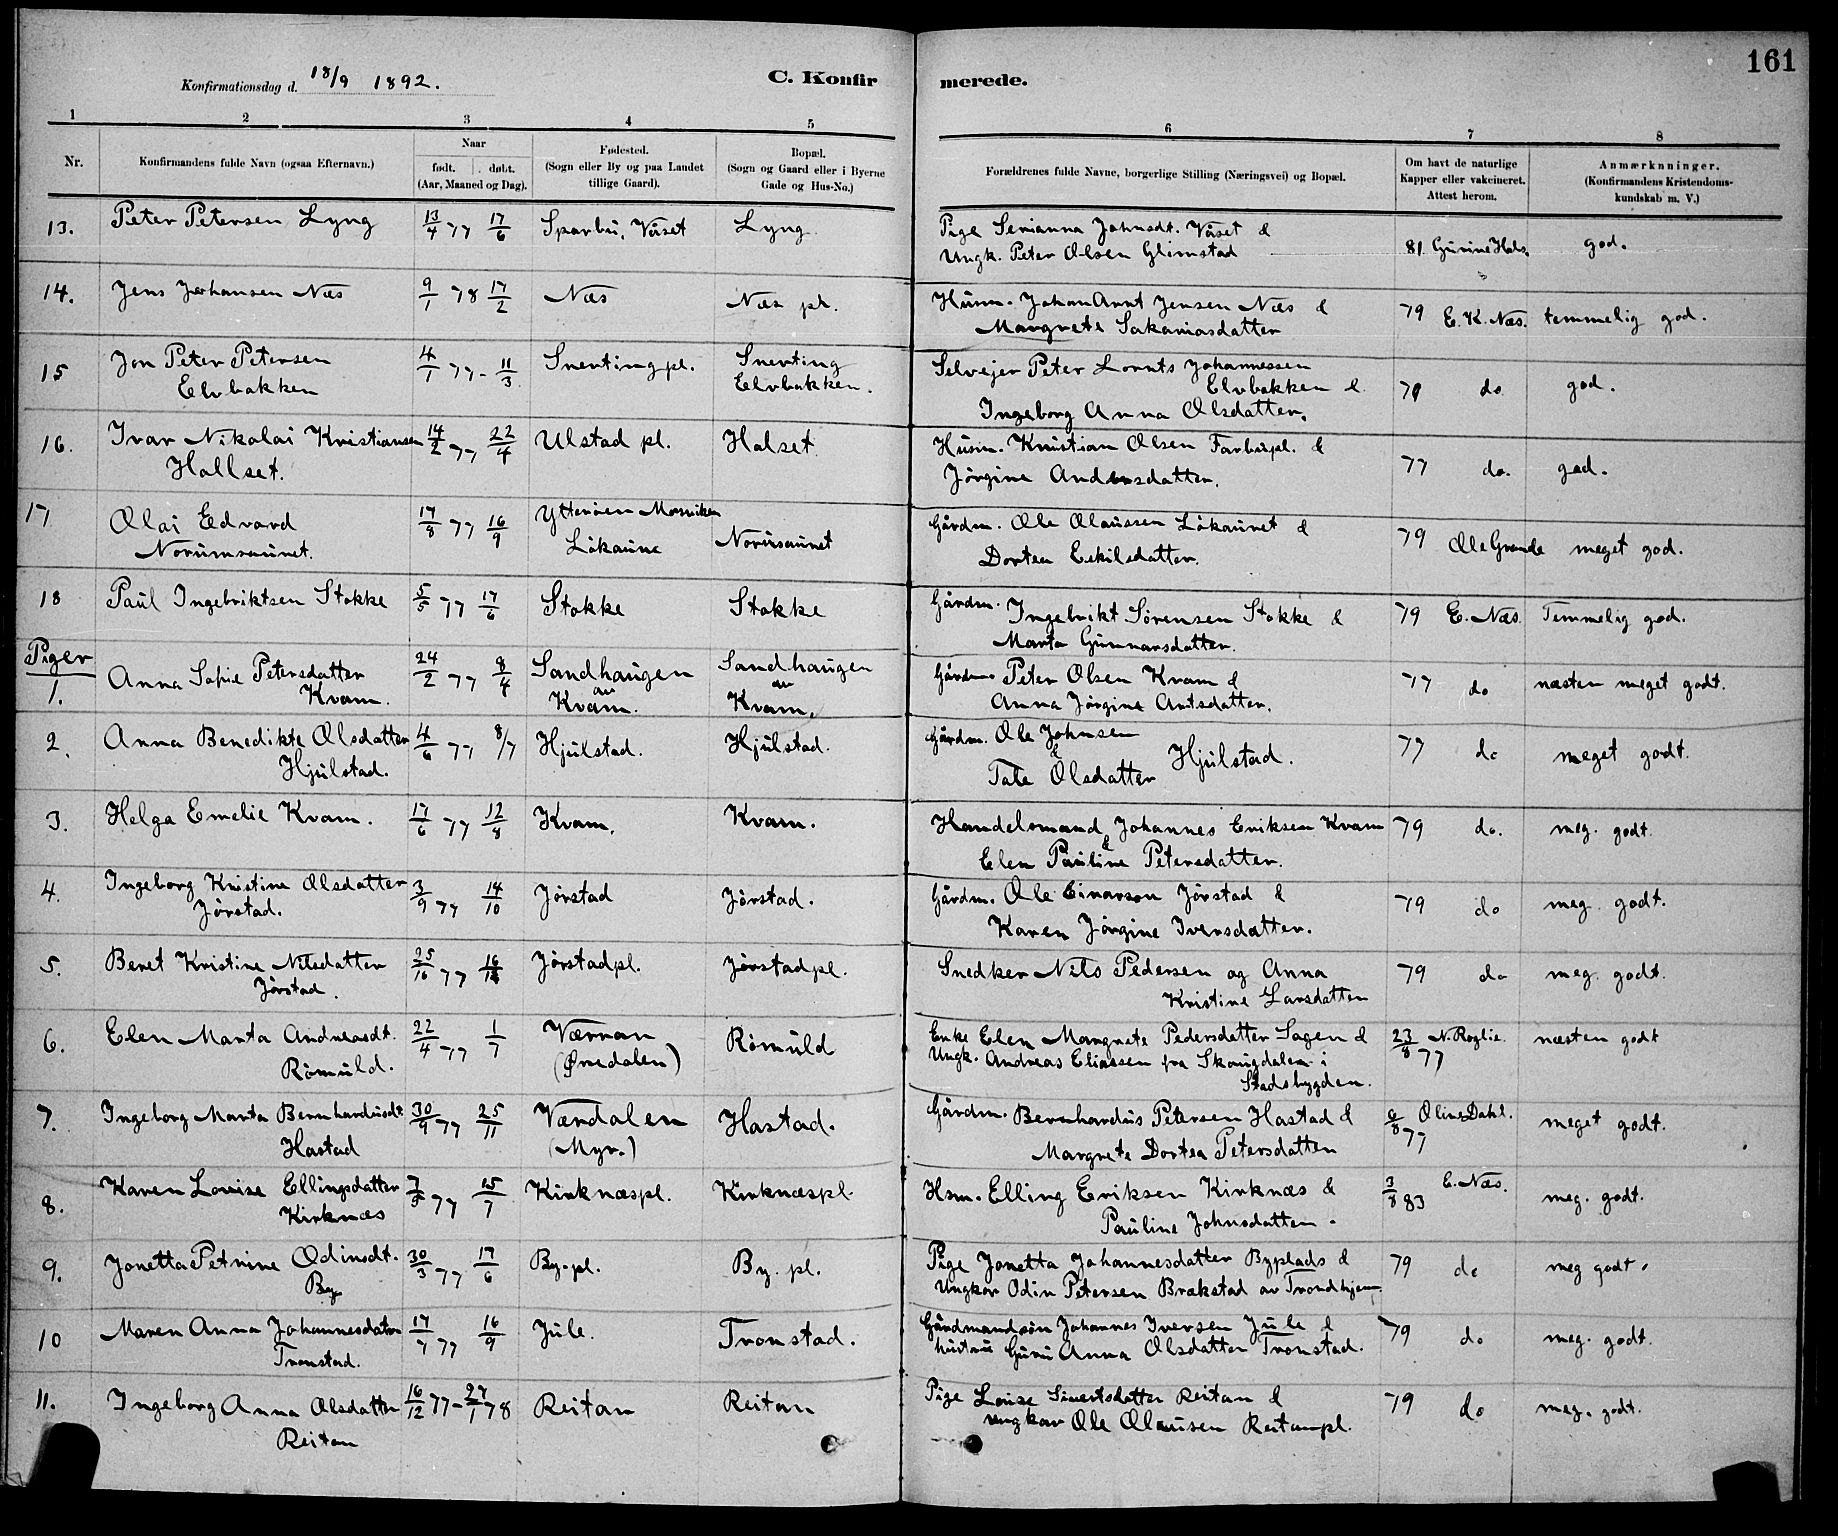 161
Konfirmationsdag d. 18/9 1892.
C. Konfirmerede.
1 2 3 4 5 6 7 8
Nr. Konfirmandens fulde Navn (ogsaa Efternavn.) Naar født. døbt. (Aar, Maaned og Dag). Fødested. (Sogn eller By og paa Landet tillige Gaard). Bopæl. (Sogn og Gaard eller i Byerne Gade og Hus-No.) Forældrenes fulde Navne, borgerlige Stilling (Næringsvei) og Bopæl. Om havt de naturlige Kapper eller vakcineret. Attest herom. Anmærknninger. (Konfirmandens Kristendomskundskab m. V.)
13. Peter Petersen Lyng 13/4 77 17/6 Sparbu, Våset Lyng Pige Serianna Johnsdt. Våset &
Ungk. Peter Olsen Glimstad 81 Gurine Hals. god.
14. Jens Johansen Næs 9/1 78 17/2 Næs Næs pl. Husm. Johan Arnt Jensen Næs &
Margrete Sakariasdatter 79 E. K. Næs. temmelig god.
15 Jon Peter Petersen
Elvbakken 4/1 77 - 11/3 Snerting pl. Snerting
Elvbakken. Selvejer Peter Lornts Johannessen
Elvbakken &
Ingeborg Anna Olsdatter. 79 do god.
16. Ivar Nikolai Kristiansen
Hallset. 14/2 77 22/4 Ulstad pl. Halset Husm. Kristian Olsen Farbupl. &
Jörgine Andersdatter. 77 do. god.
17 Olai Edvard
Norumsaunet. 17/8 77 16/9 Ytterøen
Løkaune Norusaunet Gårdm. Ole Olaussen Løkaunet &
Dortea Eskilsdatter. 79 Ole Grande meget god.
18 Paul Ingebriktsen Stokke 5/5 77 17/6 Stokke Stokke Gårdm. Ingebrikt Sørensen Stokke &
Marta Gunnarsdatter. 79 E. Næs. Temmelig god.
Piger
1. Anna Sofie Petersdatter
Kvam. 24/2 77 8/4 Sandhaugen
av
Kvam. Sandhaugen
av
Kvam. Gårdm. Peter Olsen Kvam &
Anna Jörgine Arntsdatter. 77 do næsten meget godt.
2. Anna Benedikte Olsdatter
Hjulstad. 4/6 77 8/7 Hjulstad. Hjulstad. Gårdm. Ole Johnsen
& Hjulstad.
Tale Olsdatter 77 do meget godt.
3. Helga Emelie Kvam. 17/6 77 12/8 Kvam. Kvam. Handelsmand Johannes Eriksen Kvam
&
Elen Pauline Petersdatter. 79 do. meg. godt.
4. Ingeborg Kristine Olsdatter
Jørstad. 3/9 77 14/10 Jørstad Jørstad. Gårdm. Ole Einarson Jørstad &
Karen Jörgine Iversdatter. 79 do meg. godt.
5. Beret Kristine Nilsdatter
Jørstad. 25/10 77 Jørstadpl. Jørstadpl. Snedker Nils Pedersen og Anna
Kristine Larsdatter 79 do meg. godt.
6. Elen Marta Andreasdt.
Rømuld. 22/4 77 1/7 Værran
(Øvedalen) Rømuld Enke Elen Margrete Pedersdatter Sagen &
Ungk. Andreas Eliassen fra Skaugdalen i
Stadsbygden. 23/8 77 N. Roglie. næsten godt
7. Ingeborg Marta Bernhardusdt.
Hastad 30/9 77 25/11 Værdalen
(Myr.) Hastad. Gårdm. Bernhardus Petersen Hastad &
Margrete Dortea Petersdatter 77 Oline Dahl. meget godt.
8. Karen Lovise Ellingsdatter
Kirknæs 7/5 77 15/7 Kirknæspl. Kirknæspl. Hsm. Elling Eriksen Kirknæs &
Pauline Johnsdatter. 3/8 83 E. Næs. meg. godt.
9. Jonetta Petrine Odinsdt.
By 30/3 77 17/6 By-pl. By. pl. Pige Jonetta Johannesdatter Byplads &
Ungkar Odin Petersen Brækstad av Trondhjem 79 do meg godt.
10 Maren Anna Johannesdatter
Tronstad. 17/7 77 16/9 Jule. Tronstad. Gårdmandssön Johannes Iversen Jule &
hustru Guru Anna Olsdatter Tronstad. 79 do meg. godt.
11. Ingeborg Anna Olsdatter
Reitan 16/12 77 - 27/1 78 Reitan Reitan Pige Lovise Siuertsdatter Reitan &
ungkar Ole Olausen Reitanpl. 79 do meg. godt.